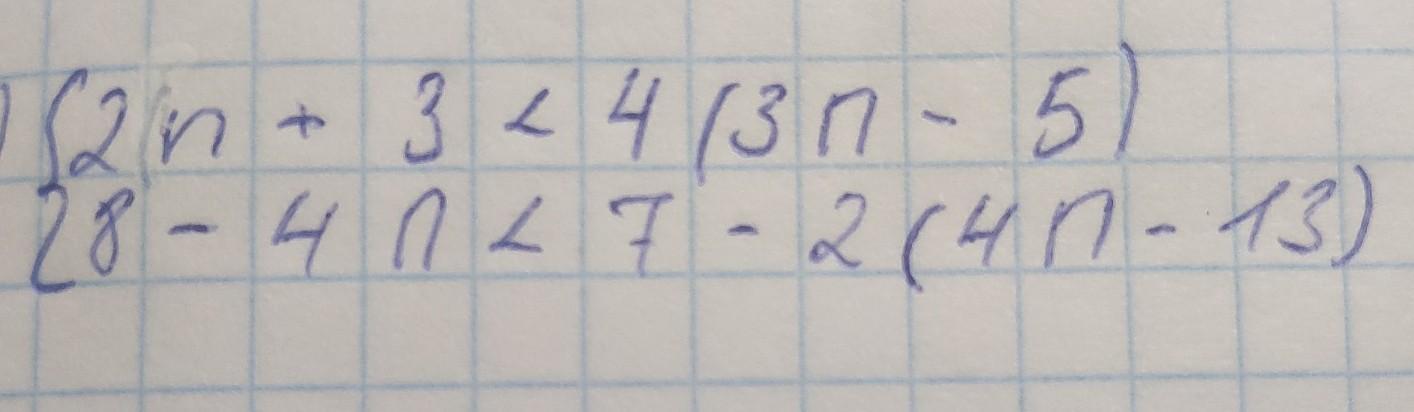 ) { 2n + 3 < 4(3n - 5)
{ 8 - 4n < 7 - 2(4n - 13)